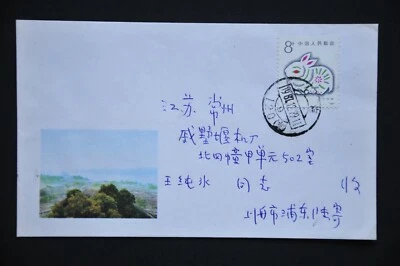 8分 中国人民邮政
江苏 常州
戚墅堰机厂
北四幢甲单元502室
王纯冰 同志 收
上海市浦东